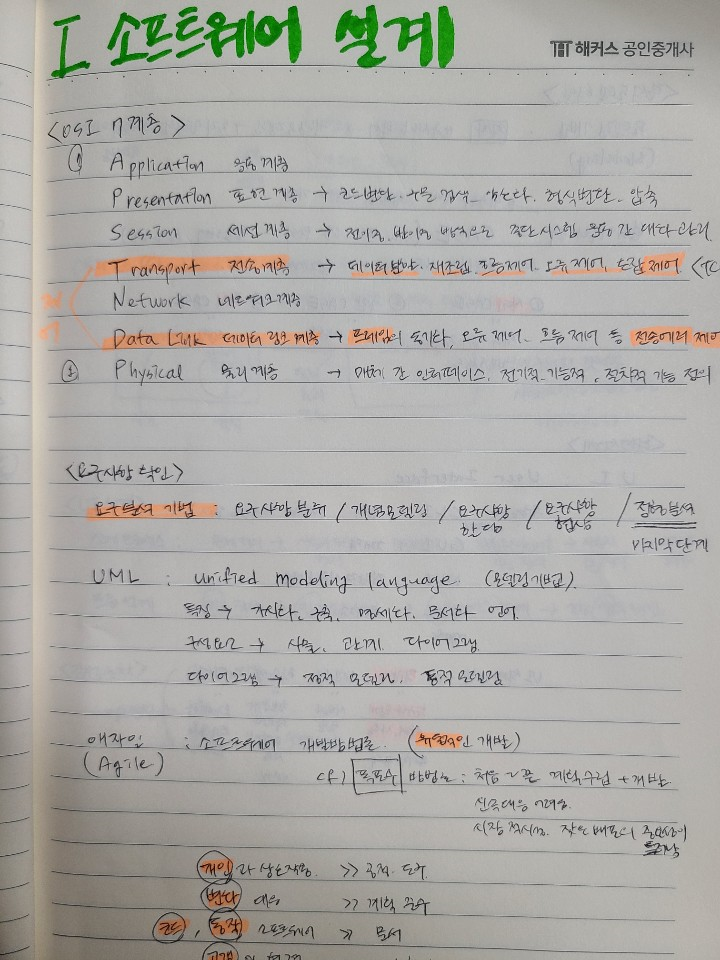 I. 소프트웨어 설계
해커스 공인중개사
<OSI 7계층>
⑦ Application 응용계층
Presentation 표현계층 → 코드변환, 구문 검색, 암호화, 형식변환, 압축
Session 세션계층 → 전이중, 반이중 방식으로 종단시스템 응용 간 대화 관리
Transport 전송계층 → 데이터분할, 재조립, 흐름제어, 오류제어, 혼잡제어 <TC
Network 네트워크계층
Data Link 데이터 링크 계층 → 프레임의 동기화, 오류제어, 흐름제어 등 전송에러 제어
① Physical 물리계층 → 매체 간 인터페이스, 전기적, 기능적, 절차적 기능 정의
<요구사항 확인>
요구분석 기법 : 요구사항 분류 / 개념모델링 / 요구사항 할당 / 요구사항 협상 / 정형분석
마지막 단계
UML : unified modeling language. (모델링기법)
특징 → 가시화, 구축, 명세화, 문서화 언어.
구성요소 → 사물, 관계, 다이어그램
다이어그램 → 정적 모델링, 동적모델링
애자일 : 소프트웨어 개발방법론. (유연적인 개발)
(Agile)
폭포수 방법론 : 처음~끝 계획수립 + 개발
신속대응 어려움.
시장 적시성, 잦은배포의
개인과 상호작용 >> 공정·도구
변화 대응 >> 계획 준수
코드, 동작 소프트웨어 >> 문서